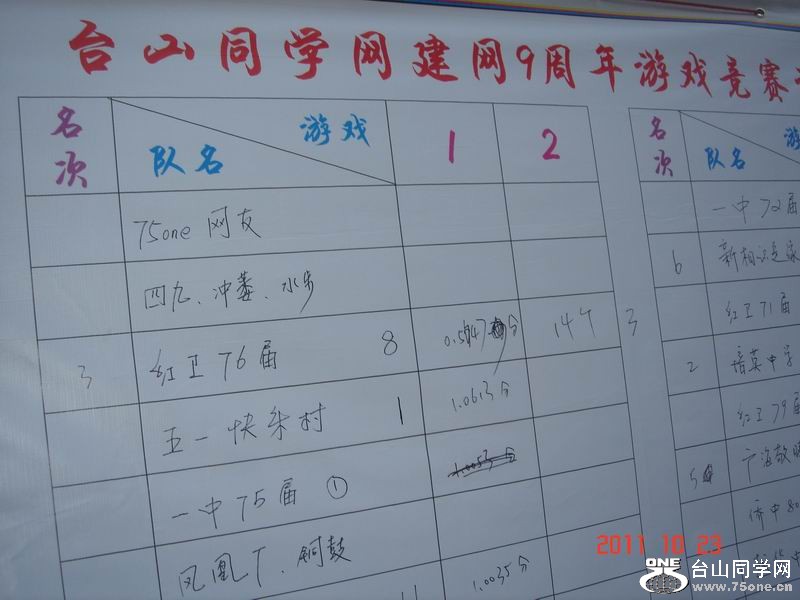 台山同学网建网9周年游戏竞赛
名次 队名 游戏 1 2
75one 网友
四九、冲蒌、水步
3 红卫76届 8 14个 3
五一快乐村 1 1.0613分
一中75届 ①
凤凰T、铜鼓 1.0035分
名次 队名 游
一中72届
6 新相识是家
红卫71届
2 培英中学
红卫79届
5
侨中80
2011 10 23
ONE 台山同学网
www.75one.cn